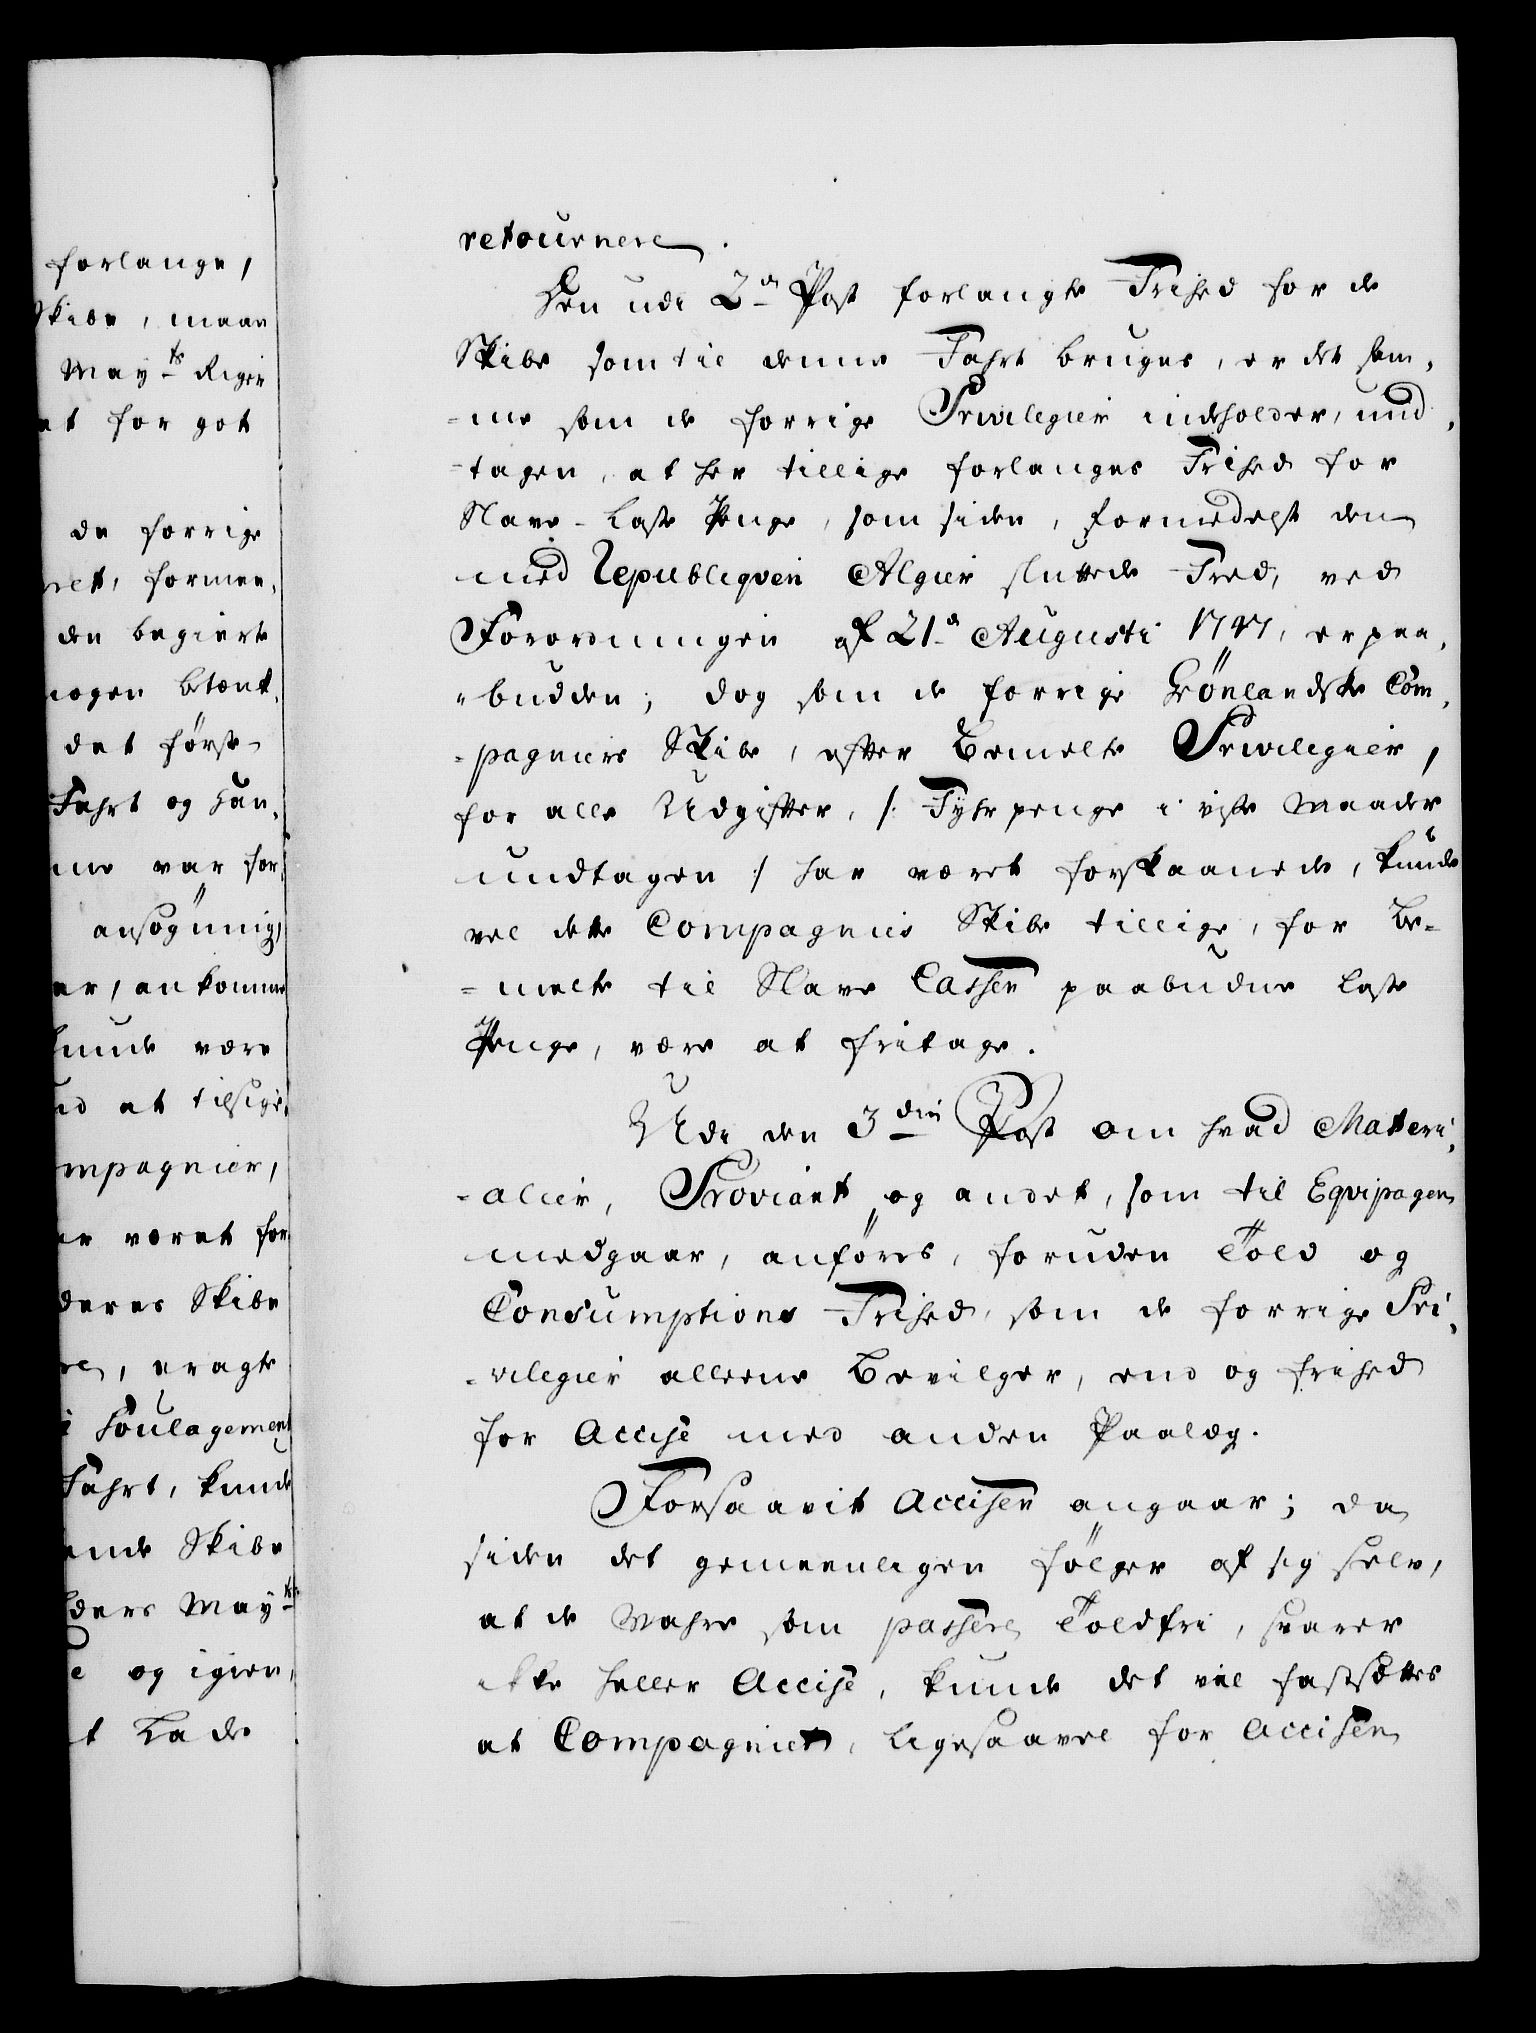 forlange,
Skibe, maae
Mayts Riger
at for got
de forrige
net, formee,
den begierte
nogen betænk,
det første
Fahrt og Han,
ne var for,
ansøgning,
er, ankomme
kunde være
ud at tilsige,
mpagnier,
er været for
deres Skibe
re, eragte
i Soulagement
Fahrt, kunde
ende Skibe
ders Mayts
e og igien,
t Lade
retournere.
Den udi 2de Post forlangte Frihed for de
Skibe som til denne Fahrt bruges, er det sam,
-me som de forrige Privilegier indeholder, und,
-tagen, at her tillige forlanges Frihed for
Slave-Laste Penge, som siden, formedelst den
med Republiqven Algier sluttede Fred, ved
Forordningen af 21de Augusti 1747, er paa,
-budden; dog som de forrige Grönlandske Com,
-pagniers Skibe, efter bemelte Privilegier,
for alle Udgifter, /: Fyhrpenge i visse Maader
undtagen :/ har været forskaanede, kunde
vel dette Compagnies Skibe tillige, for be-
-melte til Slave Cassen paabudne Laste
Penge, være at fritage.
Udi den 3die Post om hvad Materi,
-alier, Proviant og andet, som til Eqvipagen
medgaar, anføres, foruden Told og
Consumptions Frihed, som de forrige Pri,
-vilegier alleene bevilger, end og frihed
for Accise med anden Paalæg.
Forsaavit Accisen angaar; da
siden det gemeenligen følger af sig selv,
at de Wahre som passere Toldfri, svarer
ikke heller Accise, kunde det vel fastsættes
at Compagniet, ligesaavel for Accisen